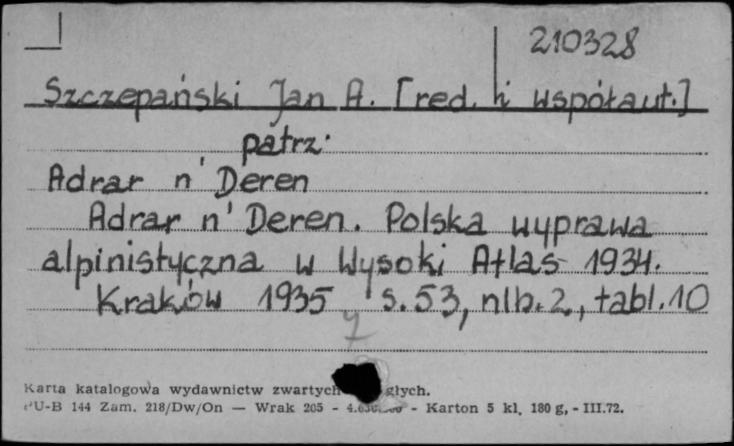 210328
Szczepański Jan A. [red. i współaut.]
patrz:
Adrar n' Deren
Adrar n' Deren. Polska wyprawa
alpinistyczna w Wysoki Atlas 1934.
Kraków 1935 s. 53, nlb. 2, tabl. 10
Karta katalogowa wydawnictw zwartych głych.
PU-B 144 Zam. 218/Dw/On — Wrak 205 - - Karton 5 kl. 180 g, - III.72.